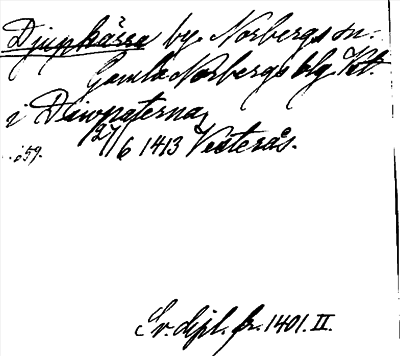 Djupkärra by Norbergs sn.
Gamla Norbergs blg Vstl.
i Diwpaterna,
27/6 1413 Vesterås.
i59.
Sv. dipl. fr. 1401. II.